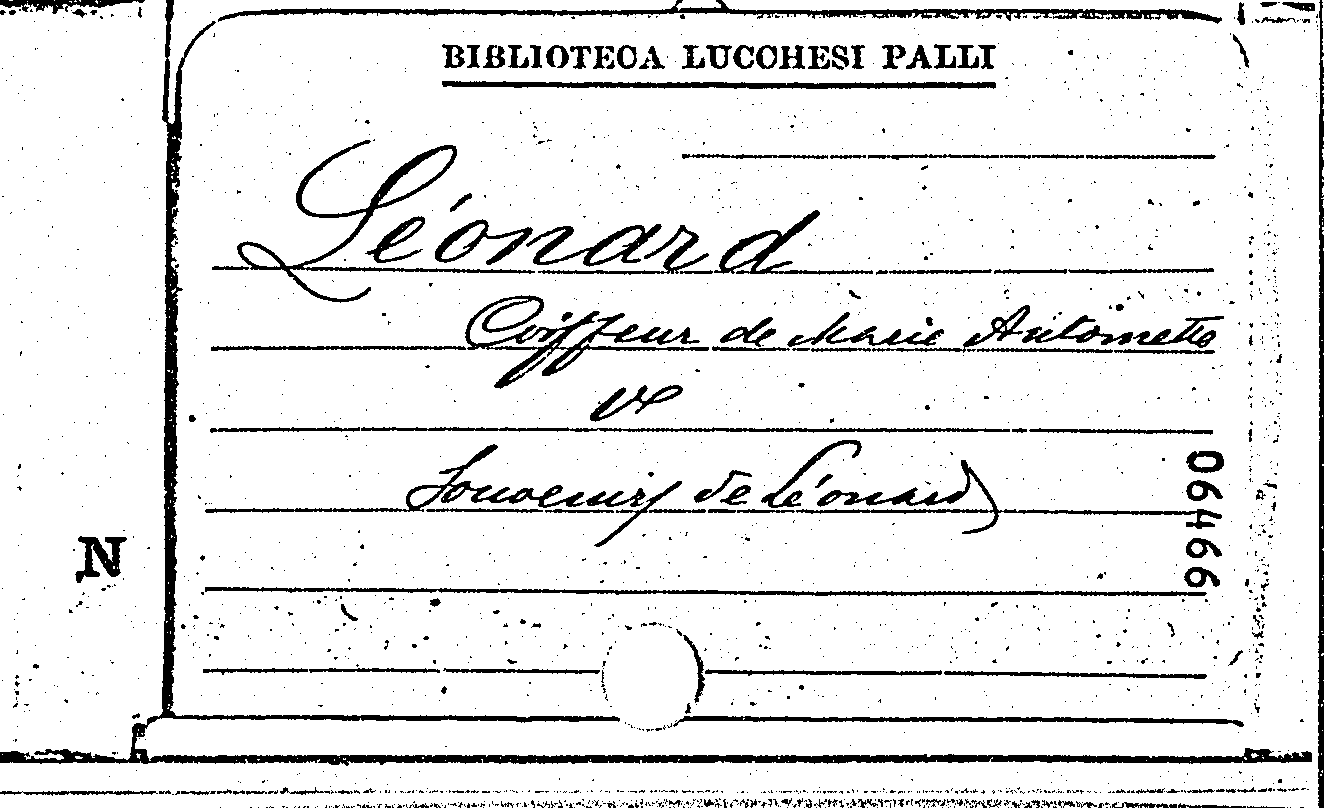 BIBLIOTECA LUCCHESI PALLI
Léonard
Coiffeur de Marie Antoinette
V
Souvenirs de Léonard
06466
N